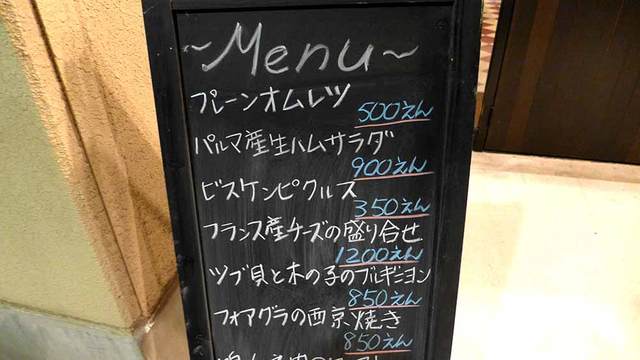 ~Menu~
プレーンオムレツ
500えん
パルマ産生ハムサラダ
900えん
ビスケンピクルス
350えん
フランス産チーズの盛り合せ
1200えん
ツブ貝と木の子のブルギニヨン
850えん
フォアグラの西京焼き
850えん